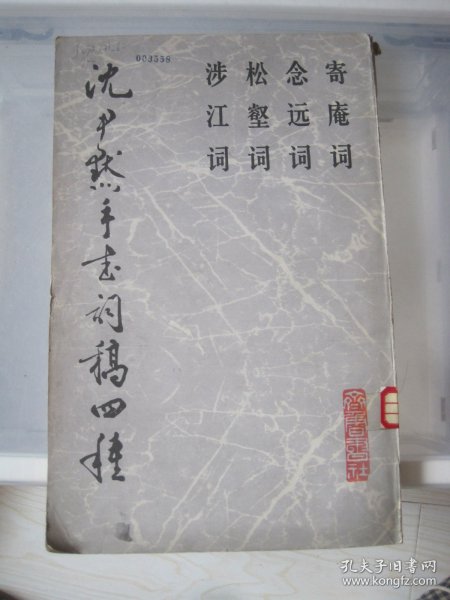 003558
寄庵词
念远词
松壑词
涉江词
沈尹默手书词稿四种
齐鲁书社
孔夫子旧书网
www.kongfz.com